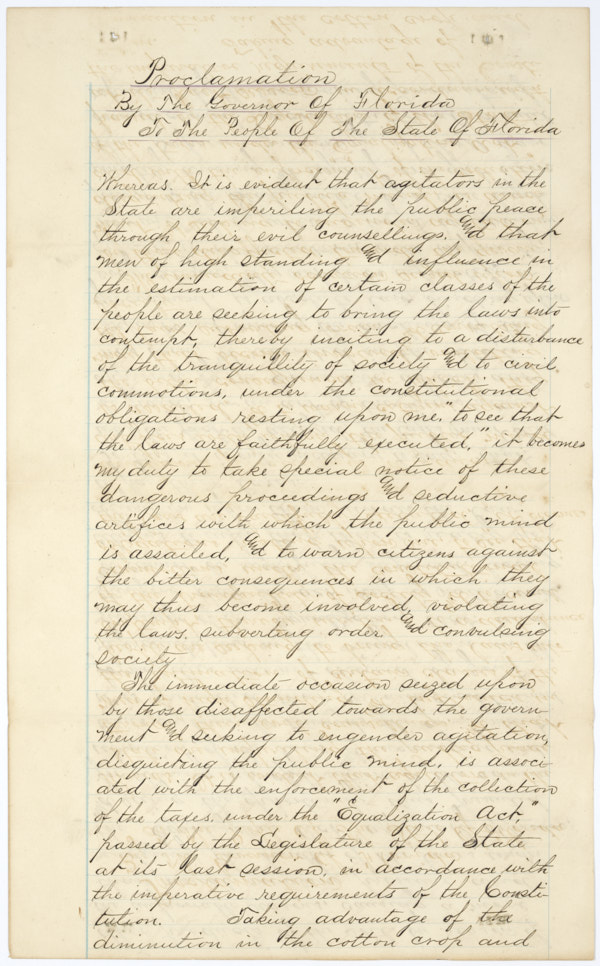 Proclamation
By The Governor Of Florida
To The People Of The State Of Florida
Whereas. It is evident that agitators in the
State are imperiling the public peace
through their evil counsellings, and that
men of high standing and influence in
the estimation of certain classes of the
people are seeking to bring the laws into
contempt, thereby inciting to a disturbance
of the tranquillity of society and to civil
commotions, under the constitutional
obligations resting upon me, "to see that
the laws are faithfully executed," it becomes
my duty to take special notice of these
dangerous proceedings and seductive
artifices with which the public mind
is assailed, and to warn citizens against
the bitter consequences in which they
may thus become involved, violating
the laws, subverting order and convulsing
society
The immediate occasion seized upon
by those disaffected towards the govern
ment and seeking to engender agitation,
disquieting the public mind, is associ-
ated with the enforcement of the collection
of the taxes, under the "Equalization Act,"
passed by the Legislature of the State
at its last session, in accordance with
the imperative requirements of the Consti-
tution. Taking advantage of the
diminution in the cotton crop and